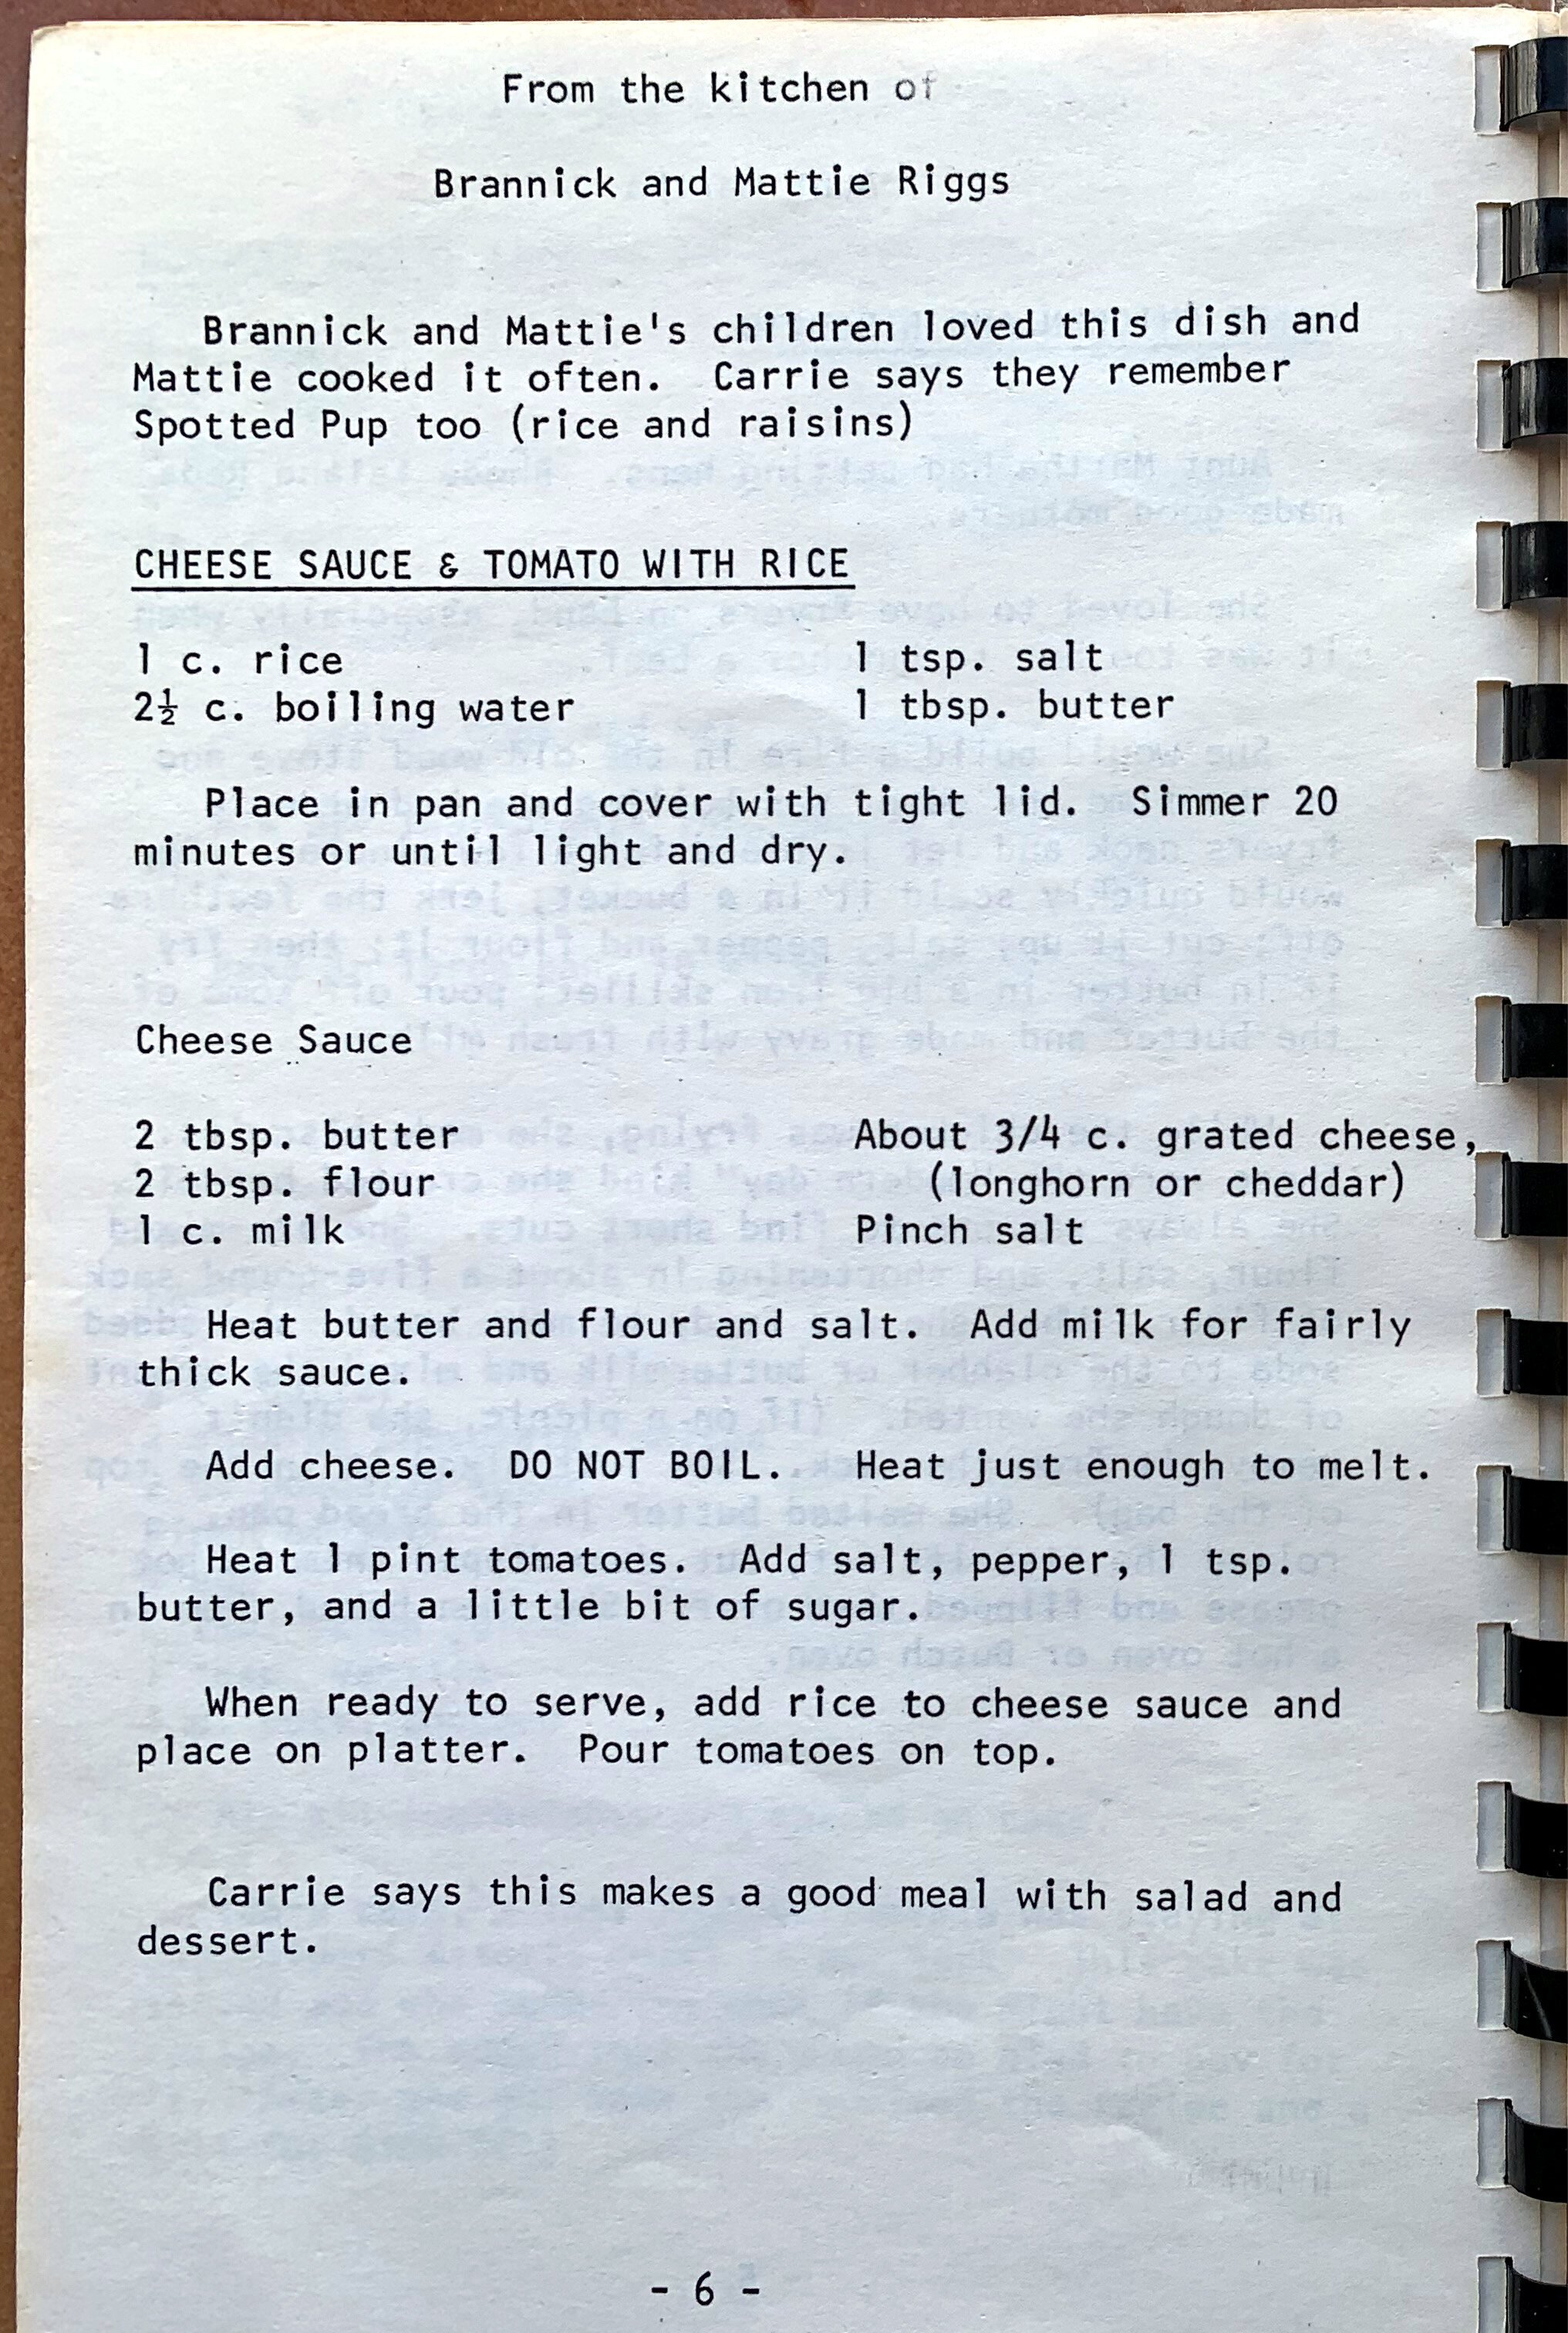 From the kitchen of
Brannick and Mattie Riggs
Brannick and Mattie's children loved this dish and
Mattie cooked it often. Carrie says they remember
Spotted Pup too (rice and raisins)
CHEESE SAUCE & TOMATO WITH RICE
1 c. rice 1 tsp. salt
2½ c. boiling water 1 tbsp. butter
Place in pan and cover with tight lid. Simmer 20
minutes or until light and dry.
Cheese Sauce
2 tbsp. butter About 3/4 c. grated cheese,
2 tbsp. flour (longhorn or cheddar)
1 c. milk Pinch salt
Heat butter and flour and salt. Add milk for fairly
thick sauce.
Add cheese. DO NOT BOIL. Heat just enough to melt.
Heat 1 pint tomatoes. Add salt, pepper, 1 tsp.
butter, and a little bit of sugar.
When ready to serve, add rice to cheese sauce and
place on platter. Pour tomatoes on top.
Carrie says this makes a good meal with salad and
dessert.
- 6 -